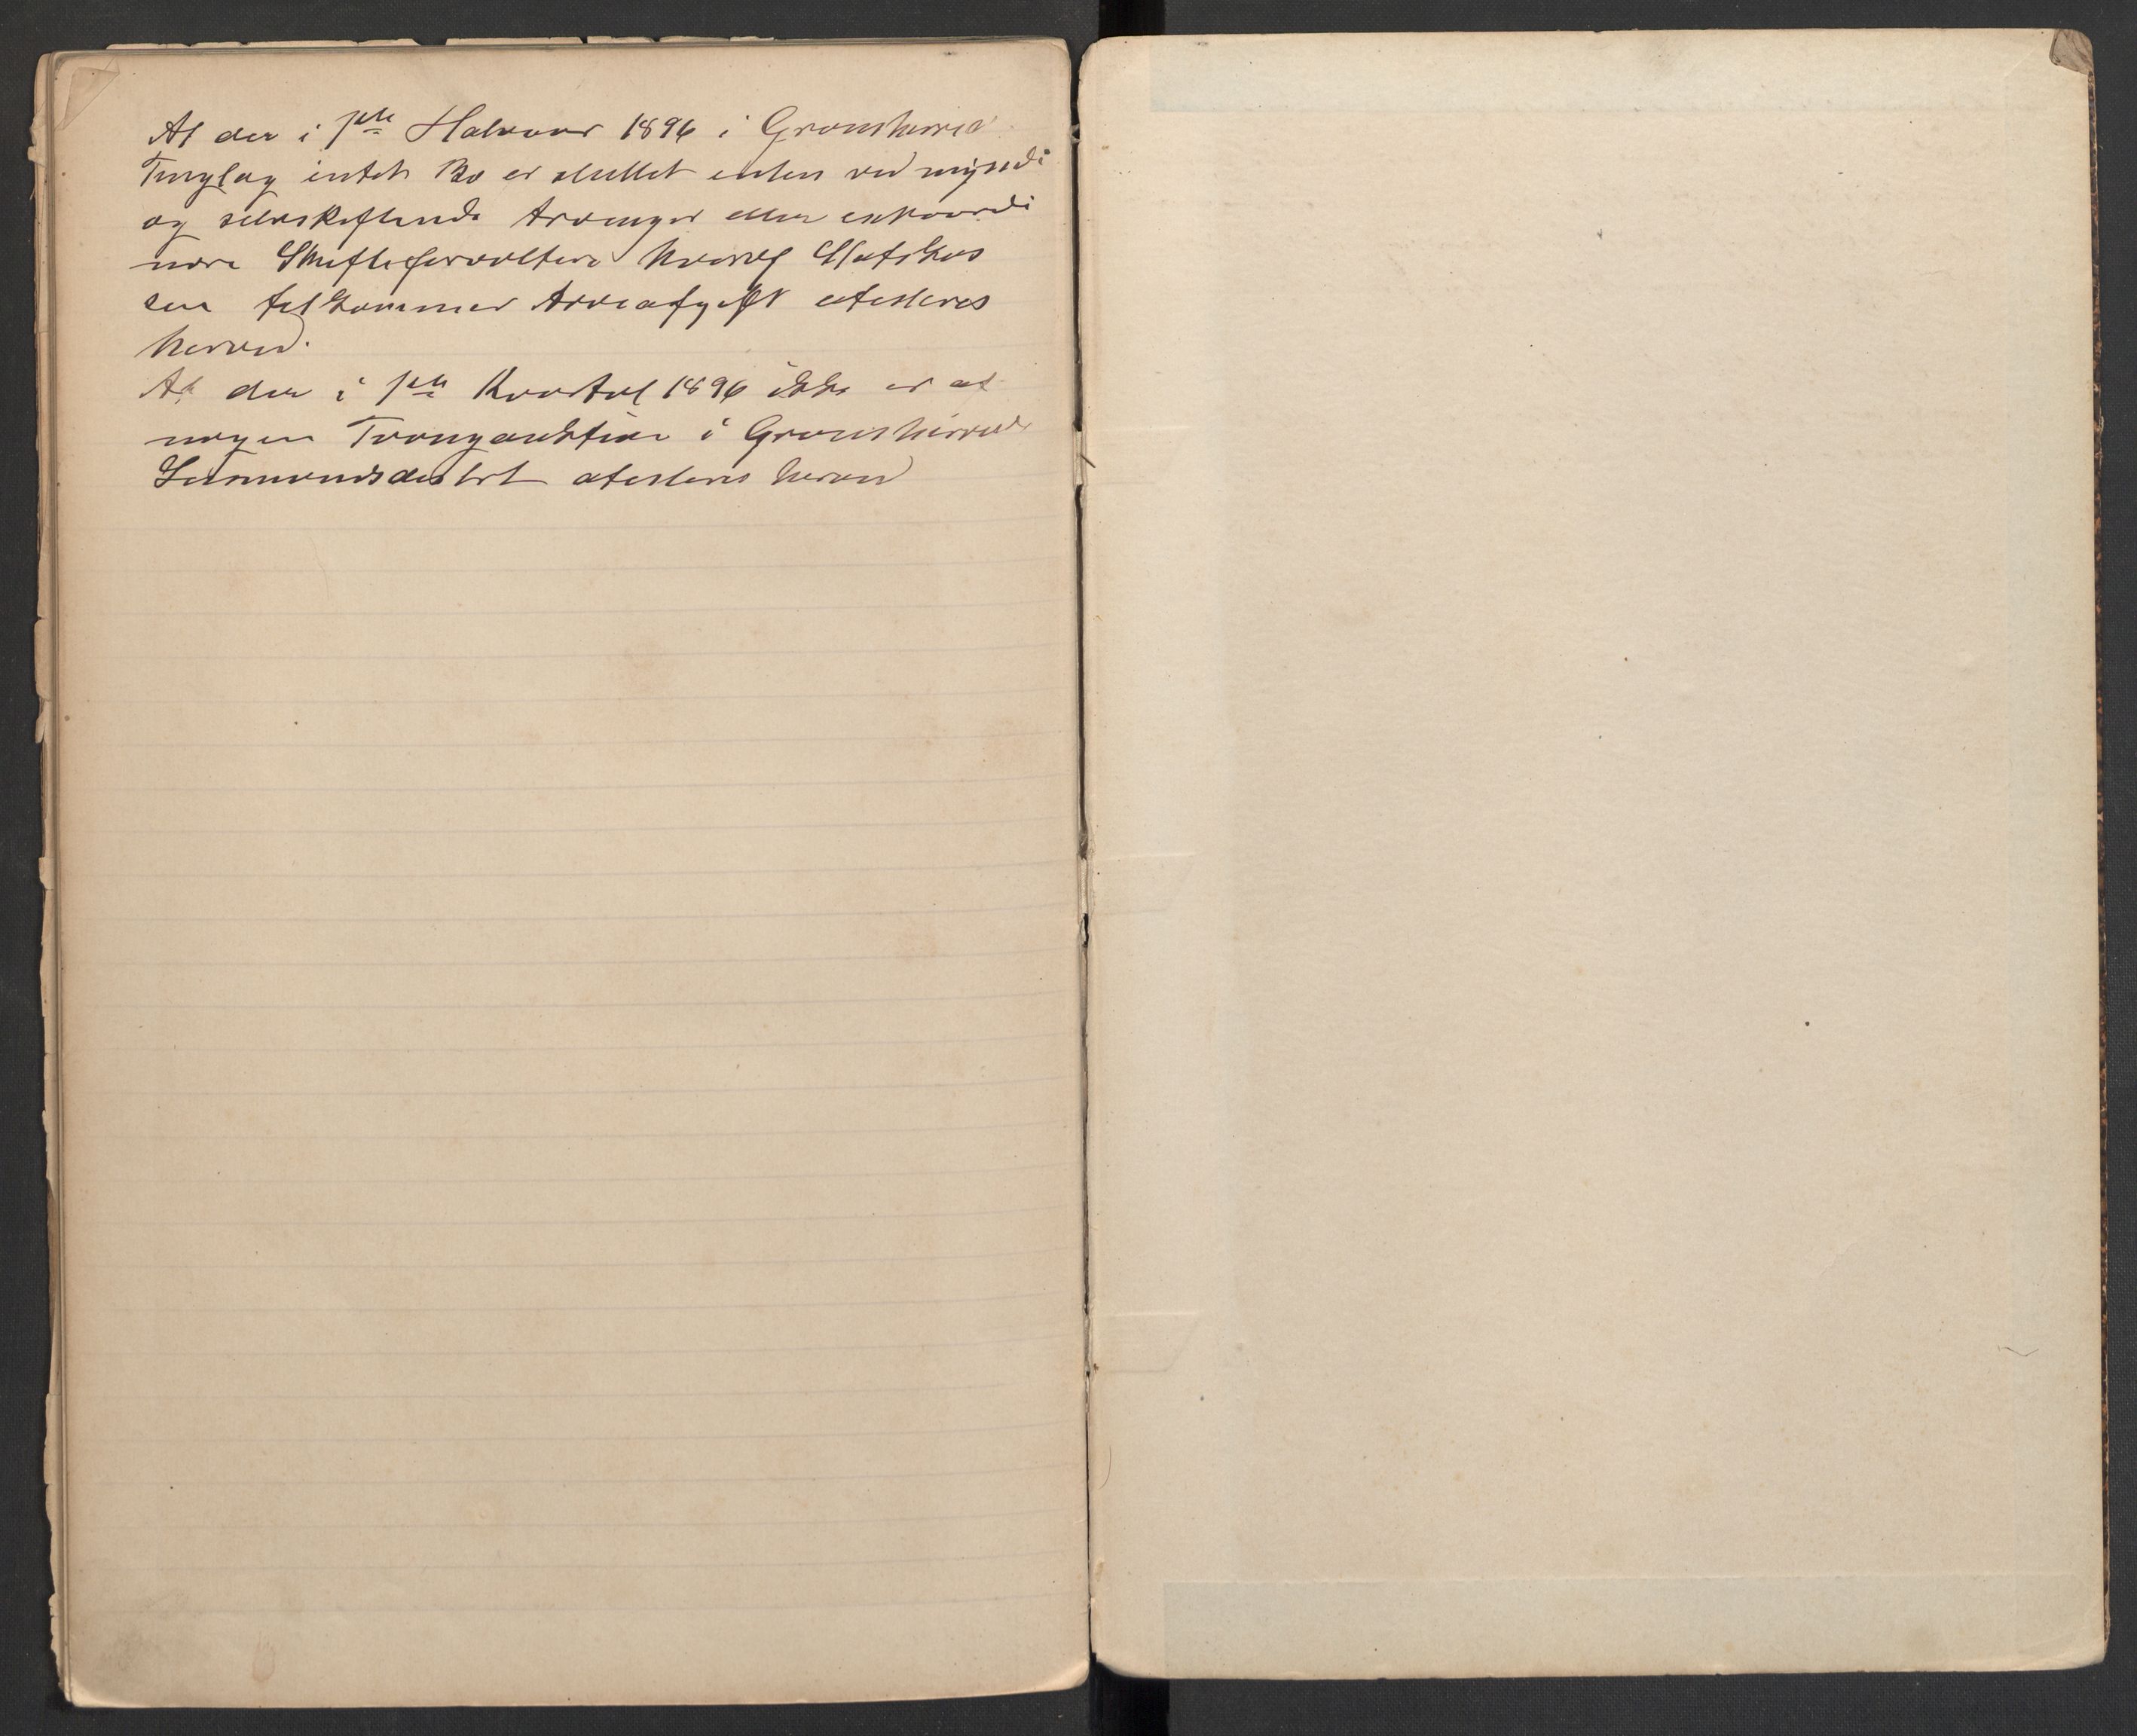 At der i 1ste Halvaar 1896 i Gransherred
Tinglag intet Bo er sluttet enten ved myndi
og selvskiftende Arvinger eller extraordi
nære Skifteforvaltere hvoraf Statskas
sen tilkommer Arveafgift attesteres
herved.
At der i 1ste Kvartal 1896 ikke er af
nogen Tvangauktion i Gransherred
Lensmandsdistrikt attesteres herved